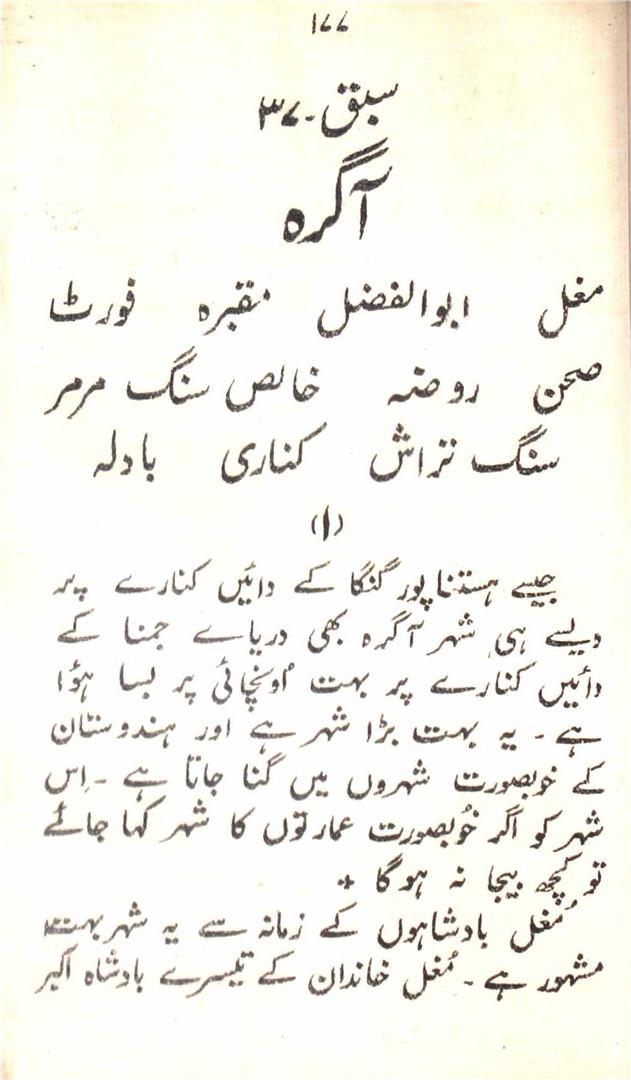 ۱۷۷
سبق۔۳۷
آگرہ
مغل ابوالفضل مقبرہ فورٹ
صحن روضہ خالص سنگ مرمر
سنگ تراش کناری بادلہ
(۱)
جیسے ہستناپور گنگا کے دائیں کنارے پر
ویسے ہی شہر آگرہ بھی دریاے جمنا کے
دائیں کنارے پر بہت اُونچائی پر بسا ہؤا
ہے۔ یہ بہت بڑا شہر ہے اور ہندوستان
کے خوبصورت شہروں میں گنا جاتا ہے۔ اِس
شہر کو اگر خُوبصورت عمارتوں کا شہر کہا جائے
تو کچھ بیجا نہ ہوگا +
مُغل بادشاہوں کے زمانہ سے یہ شہر بہت
مشہور ہے۔ مُغل خاندان کے تیسرے بادشاہ اکبر